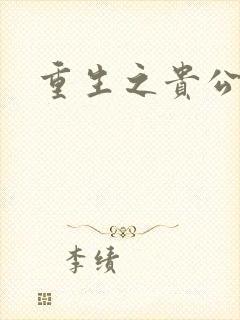 重生之貴公
李绩